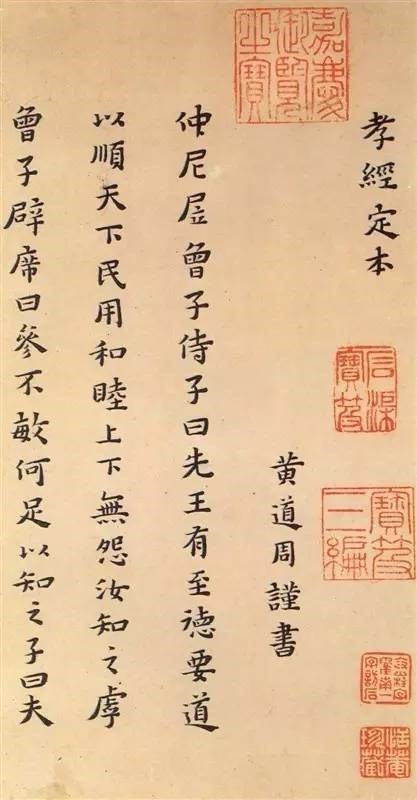 孝經定本
黄道周謹書
仲尼凥曾子侍子曰先王有至徳要道
以順天下民用和睦上下無怨汝知之虖
曾子辟席曰參不敏何足以知之子曰夫
嘉慶御覽之寶
石渠寶笈
寶笈三編